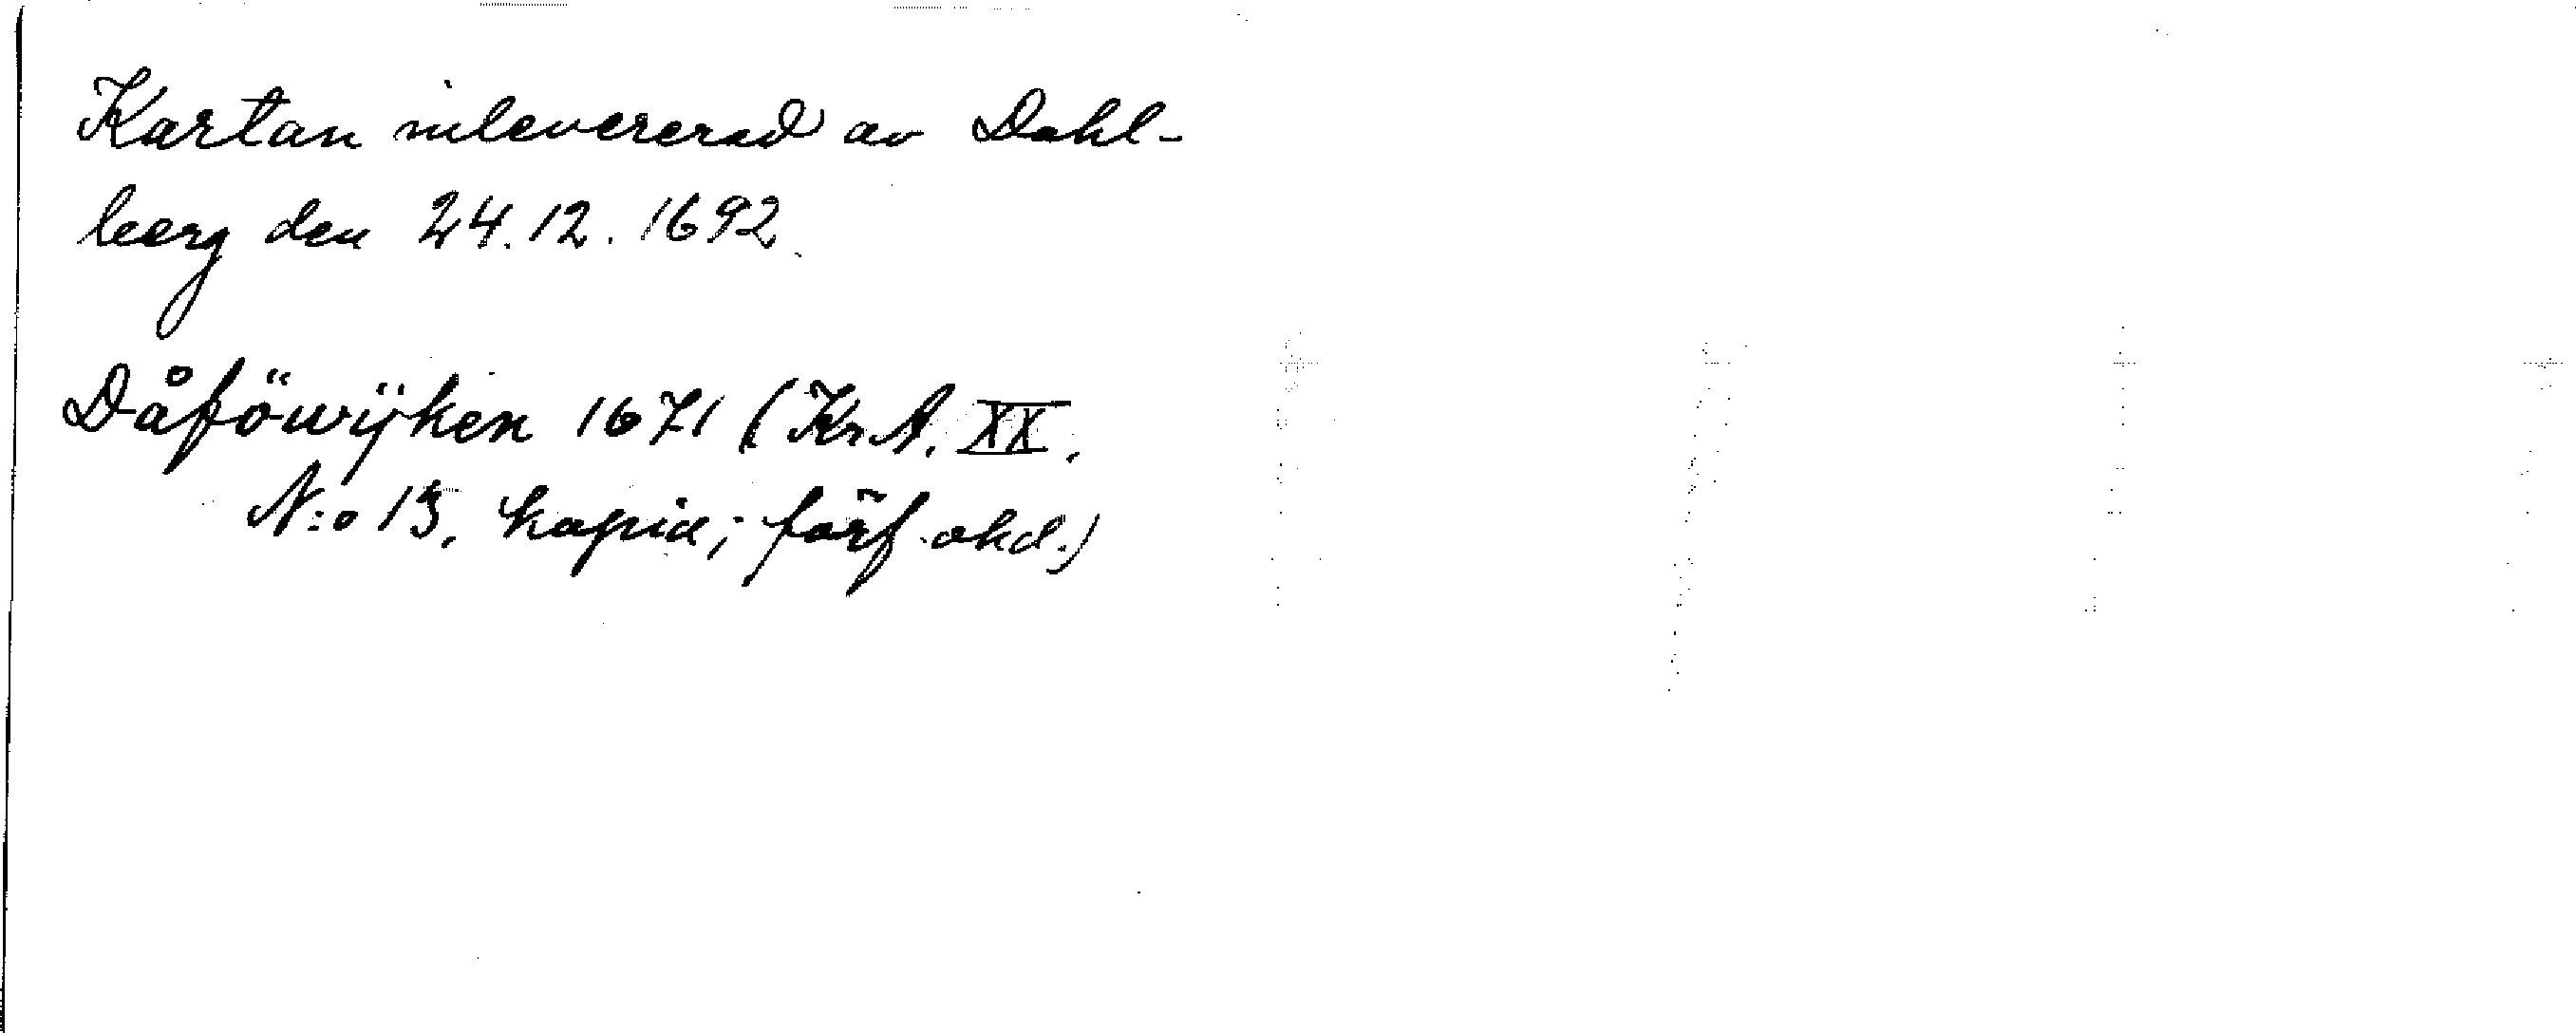 Kartan inlevererad av Dahl-
berg den 24.12.1692.
Dåföwijken 1671 (Kr.A. XX.
N:o 13, kopia; förf. okd.)